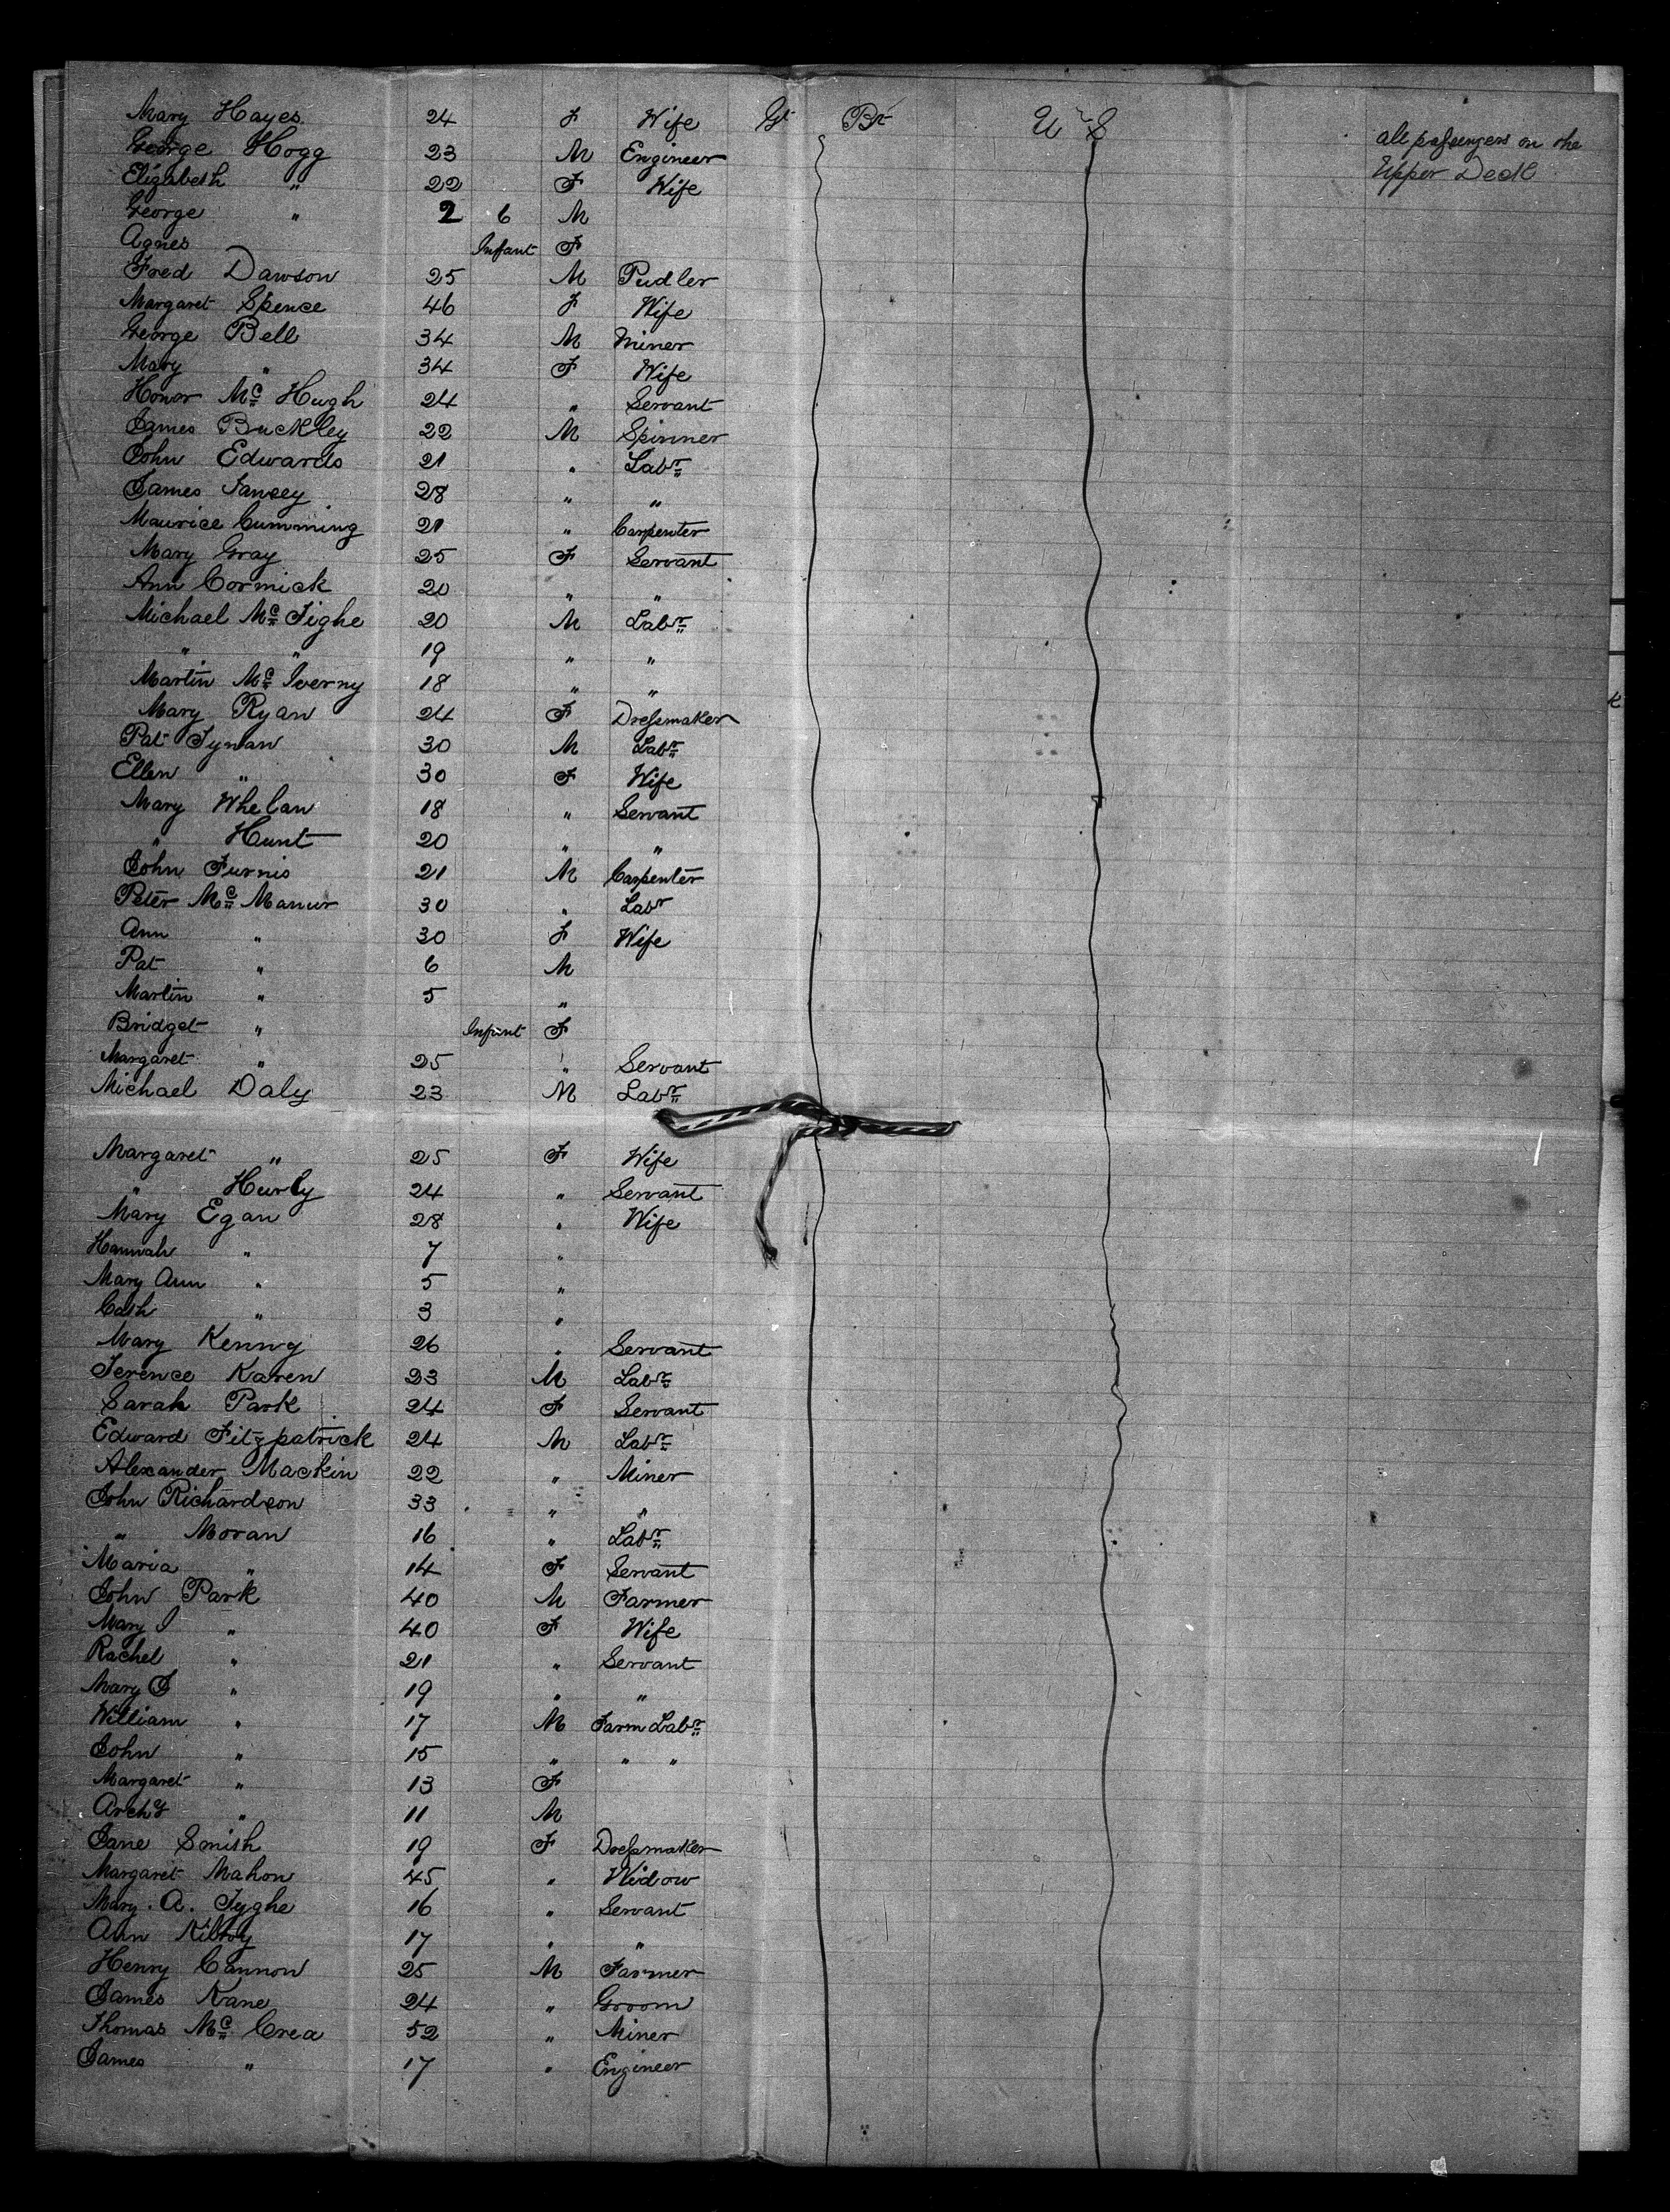 Mary Hayes 24 F Wife Gt Br U S
George Hogg 23 M Engineer all passengers on the
Elizabeth " 22 F Wife Upper Deck
George " 2 6 M
Agnes Infant F
Fred Dawson 25 M Pudler
Margaret Spence 46 F Wife
George Bell 34 M Miner
Mary " 34 F Wife
Honor Mc Hugh 24 " Servant
James Buckley 22 M Spinner
John Edwards 21 " Labr
James Fansey 28 " "
Maurice Cumming 21 " Carpenter
Mary Gray 25 F Servant
Ann Cormick 20 " "
Michael Mc Tighe 20 M Labr
" " 19 " "
Martin Mc Iverny 18 " "
Mary Ryan 24 F Dressmaker
Pat Tynan 30 M Labr
Ellen " 30 F Wife
Mary Whelan 18 " Servant
" Hunt 20 " "
John Furnis 21 M Carpenter
Peter Mc Manus 30 " Labr
Ann " 30 F Wife
Pat " 6 M
Martin " 5 "
Bridget " Infant F
Margaret " 25 " Servant
Michael Daly 23 M Labr
Margaret " 25 F Wife
" Hurly 24 " Servant
Mary Egan 28 " Wife
Hannah " 7 "
Mary Ann " 5 "
Cath " 3 "
Mary Kenny 26 " Servant
Terence Karen 23 M Labr
Sarah Park 24 F Servant
Edward Fitzpatrick 24 M Labr
Alexander Mackin 22 " Miner
John Richardson 33 " "
" Moran 16 " Labr
Maria " 14 F Servant
John Park 40 M Farmer
Mary J " 40 F Wife
Rachel " 21 " Servant
Mary J " 19 " "
William " 17 M Farm Labr
John " 15 " " "
Margaret " 13 F
Archd " 11 M
Jane Smith 19 F Dressmaker
Margaret Mahon 45 " Widow
Mary. A. Tyghe 16 " Servant
Ann Kilroy 17 " "
Henry Cannon 25 M Farmer
James Kane 24 " Groom
Thomas Mc Crea 52 " Miner
James " 17 " Engineer